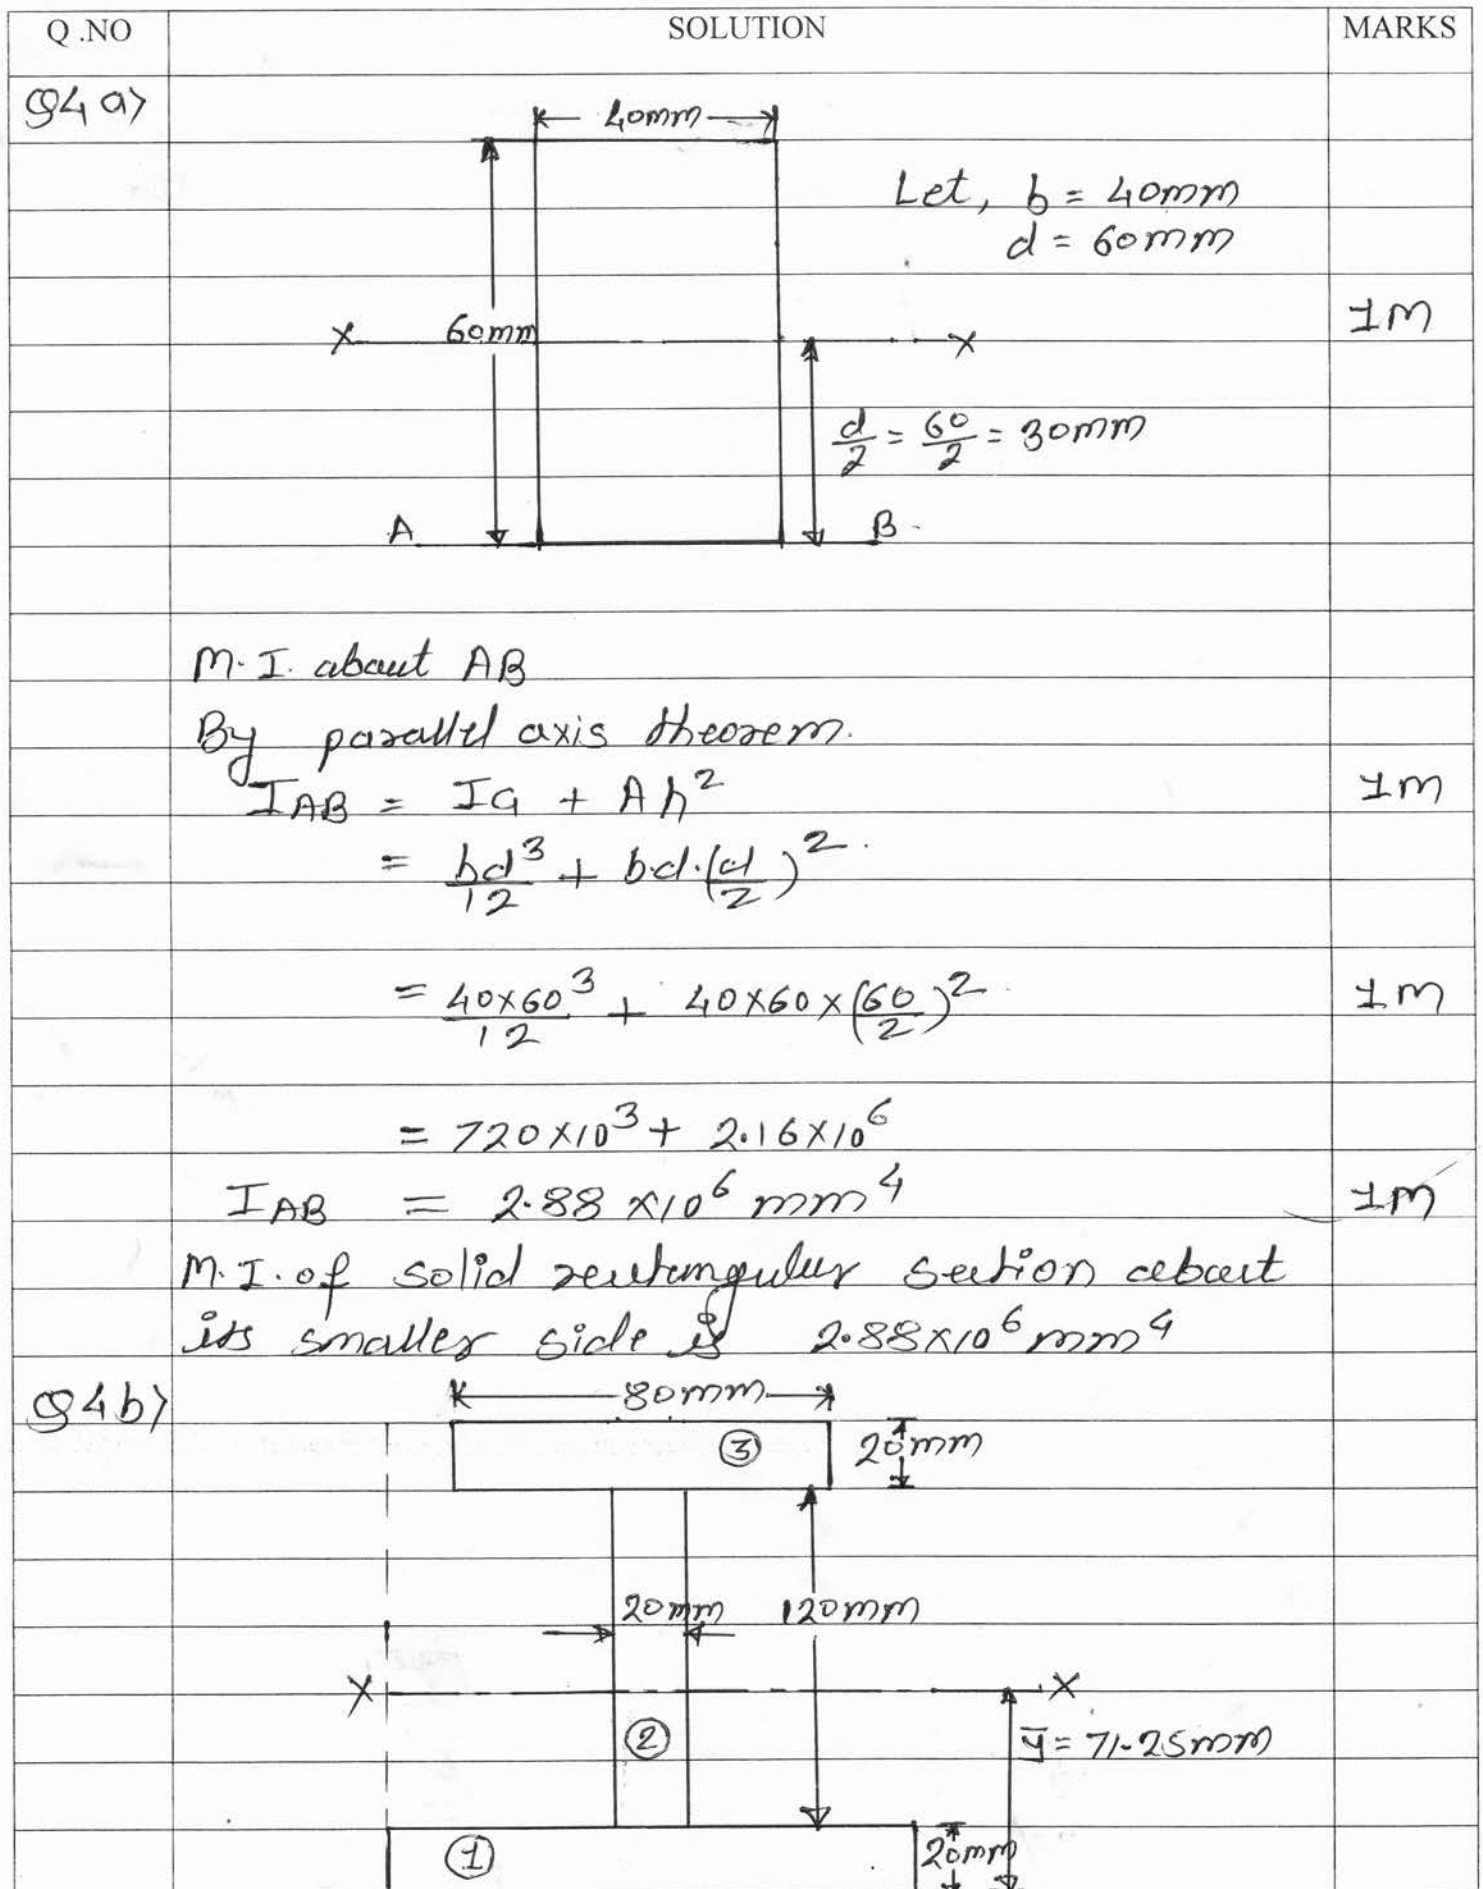 Q .NO SOLUTION MARKS
Q4 a)
40mm
Let, b = 40mm
d = 60mm
1M
X 60mm X
d/2 = 60/2 = 30mm
A B
M.I. about AB
By parallel axis theorem.
I_AB = I_G + Ah² 1M
= bd³/12 + b.d.(d/2)²
= 40×60³/12 + 40×60×(60/2)² 1M
= 720×10³ + 2.16×10⁶
I_AB = 2.88 ×10⁶ mm⁴ 1M
M.I. of solid rectangular section about
its smaller side is 2.88×10⁶ mm⁴
Q4 b) 80mm
③ 20mm
20mm 120mm
X X
② ȳ = 71.25mm
① 20mm